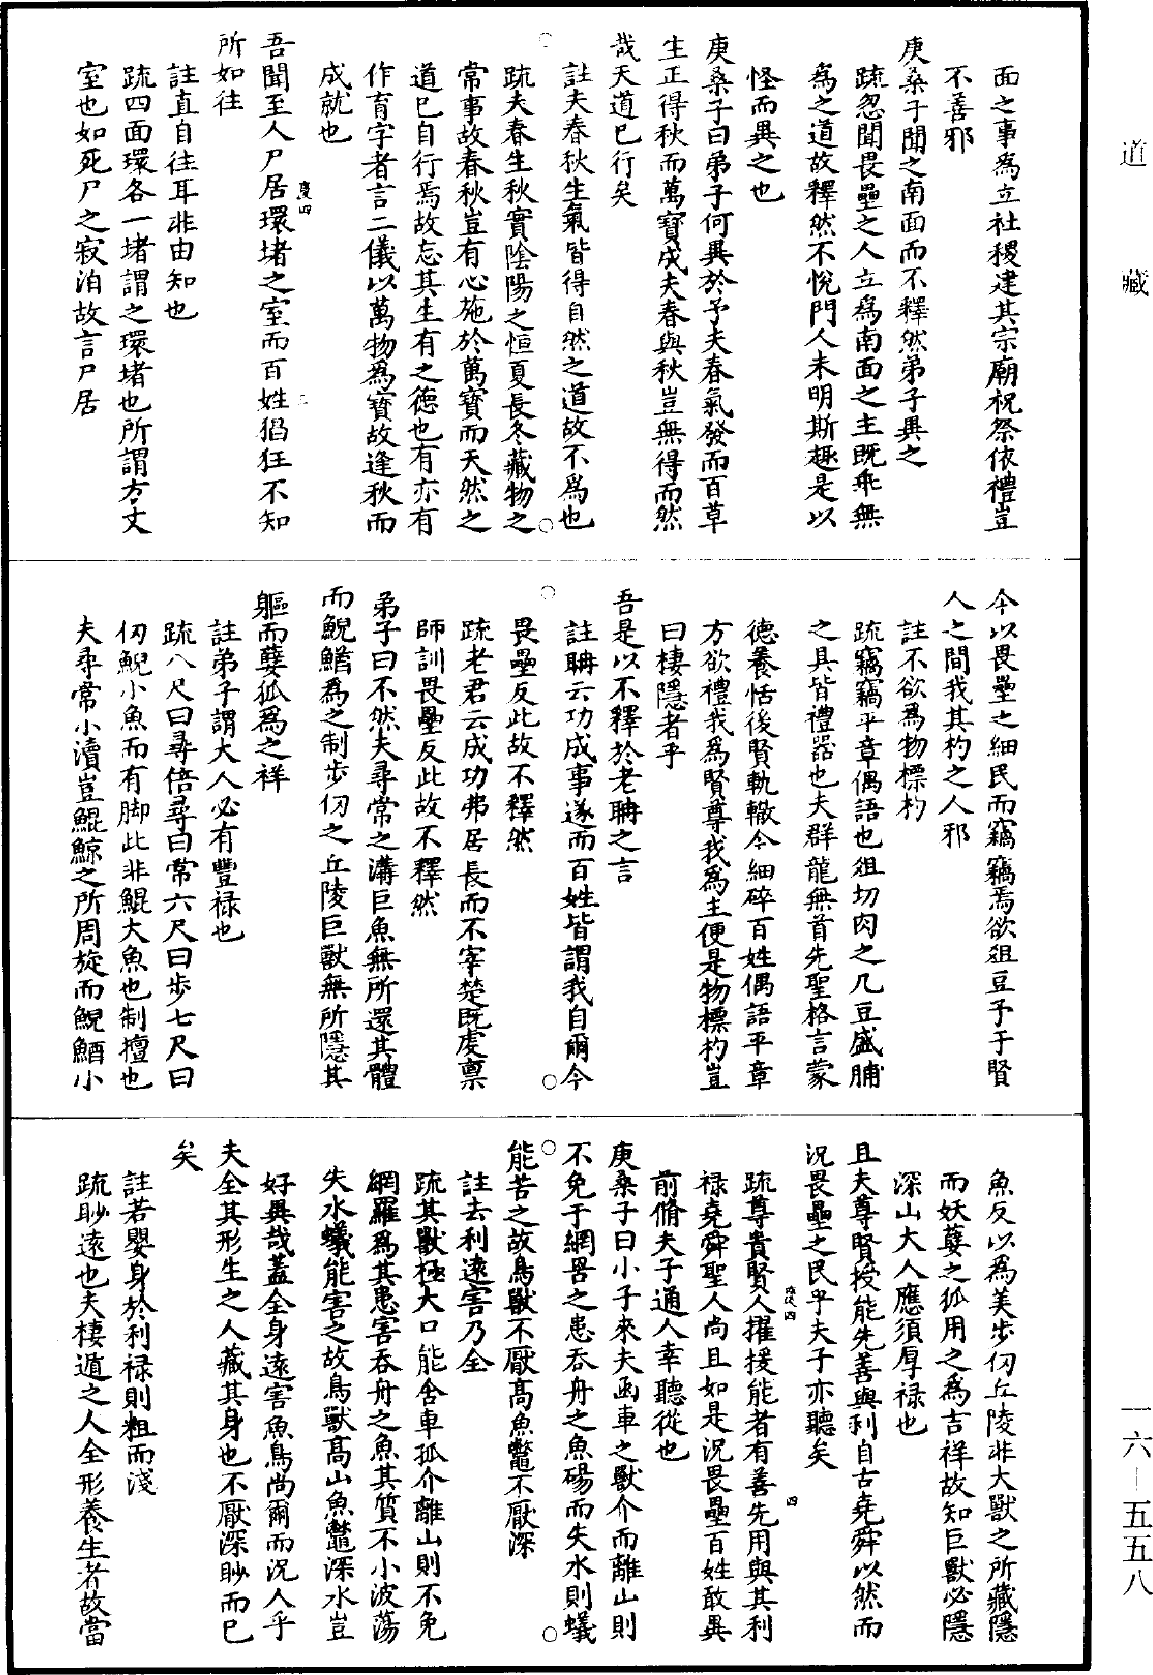 面之事為立社稷建其宗廟祝祭依禮豈
不善邪
庚桑子聞之南面而不釋然弟子異之
疏忽聞畏壘之人立為南面之主既乖無
為之道故釋然不悅門人未明斯趣是以
怪而異之也
庚桑子曰弟子何異於予夫春氣發而百草
生正得秋而萬寶成夫春與秋豈無得而然
哉天道已行矣
註夫春秋生氣皆得自然之道故不為也
疏夫春生秋實陰陽之恒夏長冬藏物之
常事故春秋豈有心施於萬寶而天然之
道已自行焉故忘其生有之德也有亦有
作育字者言二儀以萬物為寶故逢秋而
成就也
吾聞至人尸居環堵之室而百姓猖狂不知
所如往
註直自往耳非由知也
疏四面環各一堵謂之環堵也所謂方丈
室也如死尸之寂泊故言尸居
今以畏壘之細民而竊竊焉欲俎豆予于賢
人之間我其杓之人邪
註不欲為物標杓
疏竊竊平章偶語也俎切肉之几豆盛脯
之具皆禮器也夫群龍無首先聖格言蒙
德養恬後賢軌轍今細碎百姓偶語平章
方欲禮我為賢尊我為主便是物標杓豈
曰棲隱者乎
吾是以不釋於老聃之言
註聃云功成事遂而百姓皆謂我自爾今
畏壘反此故不釋然
疏老君云成功弗居長而不宰楚既虔稟
師訓畏壘反此故不釋然
弟子曰不然夫尋常之溝巨魚無所還其體
而鯢鰌為之制步仞之丘陵巨獸無所隱其
軀而㜸狐為之祥
註弟子謂大人必有豐祿也
疏八尺曰尋倍尋曰常六尺曰步七尺曰
仞鯢小魚而有脚此非鯤大魚也制擅也
夫尋常小瀆豈鯤鯨之所周旋而鯢鰌小
魚反以為美步仞丘陵非大獸之所藏隱
而妖㜸之狐用之為吉祥故知巨獸必隱
深山大人應須厚祿也
且夫尊賢授能先善與利自古堯舜以然而
況畏壘之民乎夫子亦聽矣
疏尊貴賢人擢援能者有善先用與其利
祿堯舜聖人尚且如是況畏壘百姓敢異
前脩夫子通人幸聽從也
庚桑子曰小子來夫函車之獸介而離山則
不免于網罟之患吞舟之魚碭而失水則蟻
能苦之故鳥獸不厭高魚鱉不厭深
註去利遠害乃全
疏其獸極大口能含車孤介離山則不免
網羅為其患害吞舟之魚其質不小波蕩
失水蟻能害之故鳥獸高山魚鱉深水豈
好異哉蓋全身遠害魚鳥尚爾而況人乎
夫全其形生之人藏其身也不厭深眇而已
矣
註若嬰身於利祿則粗而淺
疏眇遠也夫棲遁之人全形養生者故當
道 藏
一六—五五八